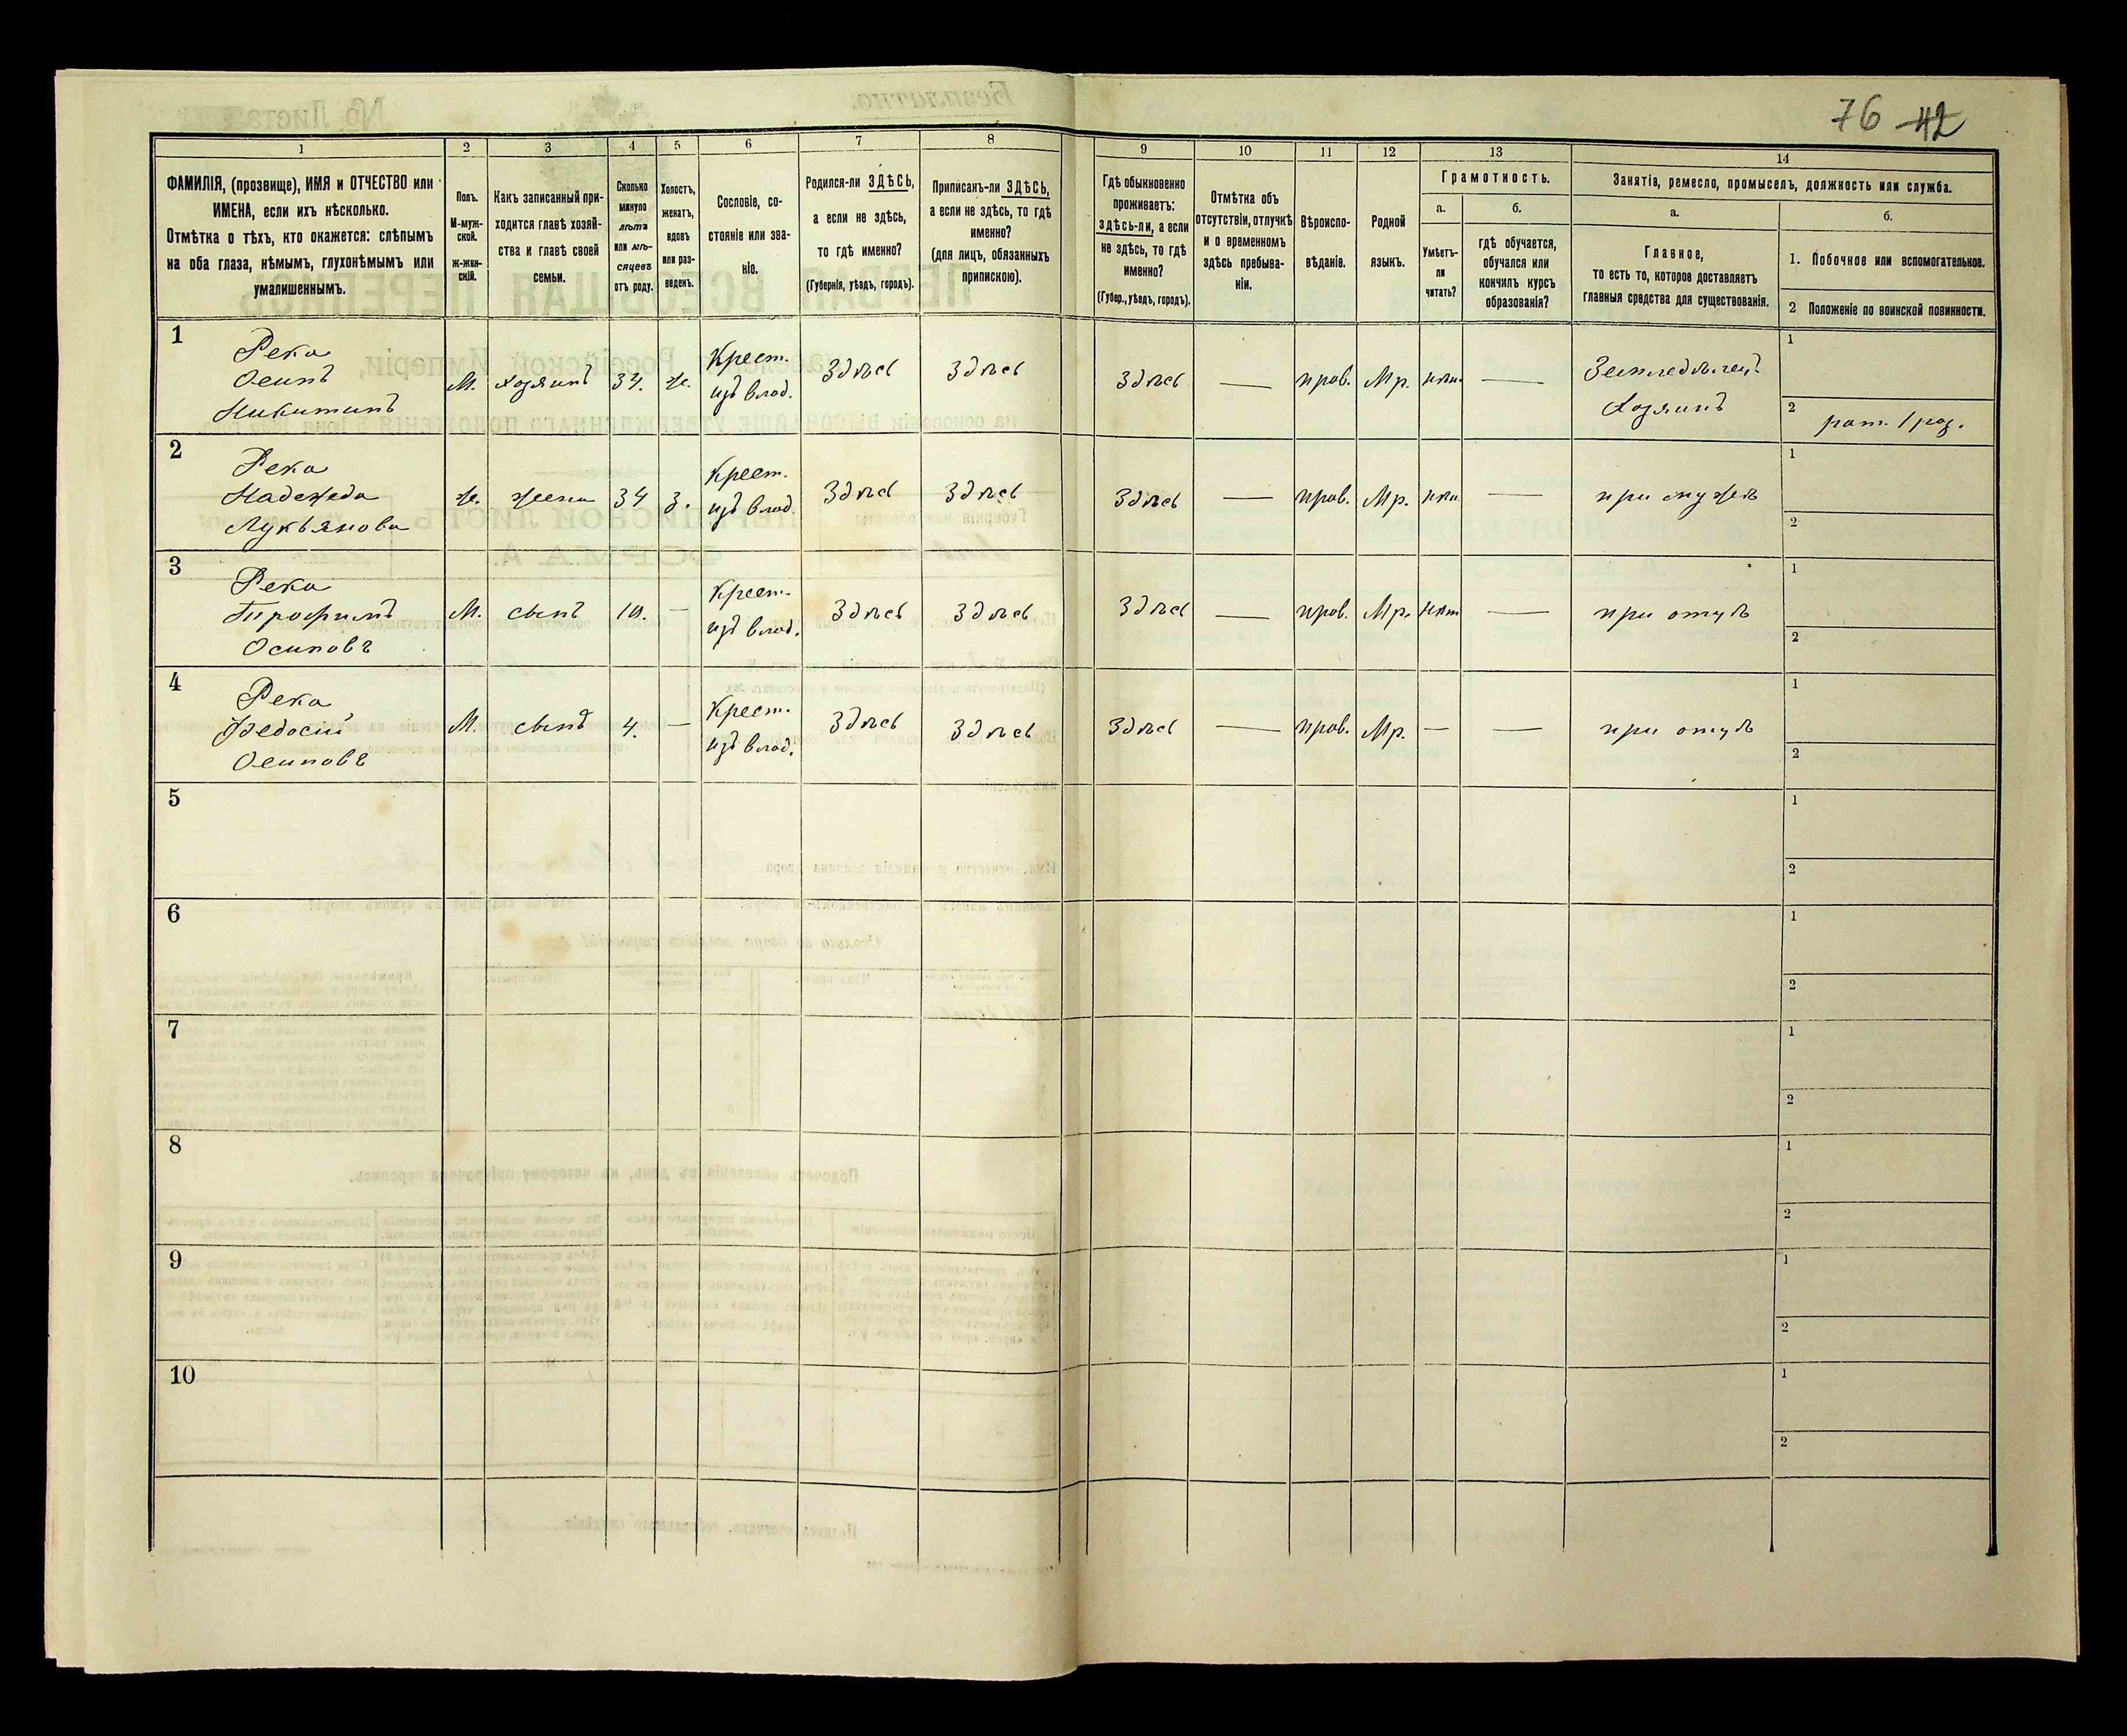 76 42
1 2 3 4 5 6 7 8 9 10 11 12 13 14
ФАМИЛІЯ, (прозвище), ИМЯ и ОТЧЕСТВО или
ИМЕНА, если ихъ нѣсколько.
Отмѣтка о тѣхъ, кто окажется: слѣпымъ
на оба глаза, нѣмымъ, глухонѣмымъ или
умалишеннымъ.
Полъ.
М-муж-
ской.
Ж-жен-
скій.
Какъ записанный при-
ходится главѣ хозяй-
ства и главѣ своей
семьи.
Сколько
минуло
лѣтъ
или мѣ-
сяцевъ
отъ роду.
Холостъ,
женатъ,
вдовъ
или раз-
веденъ.
Сословіе, со-
стояніе или зва-
ніе.
Родился-ли ЗДѢСЬ,
а если не здѣсь,
то гдѣ именно?
(Губернія, уѣздъ, городъ).
Приписанъ-ли ЗДѢСЬ,
а если не здѣсь, то гдѣ
именно?
(для лицъ, обязанныхъ
припискою).
Гдѣ обыкновенно
проживаетъ:
здѣсь-ли, а если
не здѣсь, то гдѣ
именно?
(Губер., уѣздъ, городъ).
Отмѣтка объ
отсутствіи, отлучкѣ
и о временномъ
здѣсь пребыва-
ніи.
Вѣроиспо-
вѣданіе.
Родной
языкъ.
Грамотность.
а.
Умѣетъ-
ли
читать?
б.
гдѣ обучается,
обучался или
кончилъ курсъ
образованія?
Занятіе, ремесло, промыселъ, должность или служба.
а.
Главное,
то есть то, которое доставляетъ
главныя средства для существованія.
б.
1. Побочное или вспомогательное.
2 Положеніе по воинской повинности.
1
Река
Осипъ
Никитинъ
М. хозяинъ 34. ж.
Крест.
изъ влад.
Здѣсь Здѣсь Здѣсь — прав. Мр. нѣт. —
Земледѣлец.
Хозяинъ
1
2
рат. 1 раз.
2
Река
Надежда
Лукьянова
ж. жена 34 з.
Крест.
изъ влад.
Здѣсь Здѣсь Здѣсь — прав. Мр. нѣт. — при мужѣ
1
2
3
Река
Трофимъ
Осиповъ
М. сынъ 10. —
Крест.
изъ влад.
Здѣсь Здѣсь Здѣсь — прав. Мр. нѣт — при отцѣ
1
2
4
Река
Федосій
Осиповъ
М. сынъ 4. —
Крест.
изъ влад.
Здѣсь Здѣсь Здѣсь — прав. Мр. — — при отцѣ
1
2
5
1
2
6
1
2
7
1
2
8
1
2
9
1
2
10
1
2